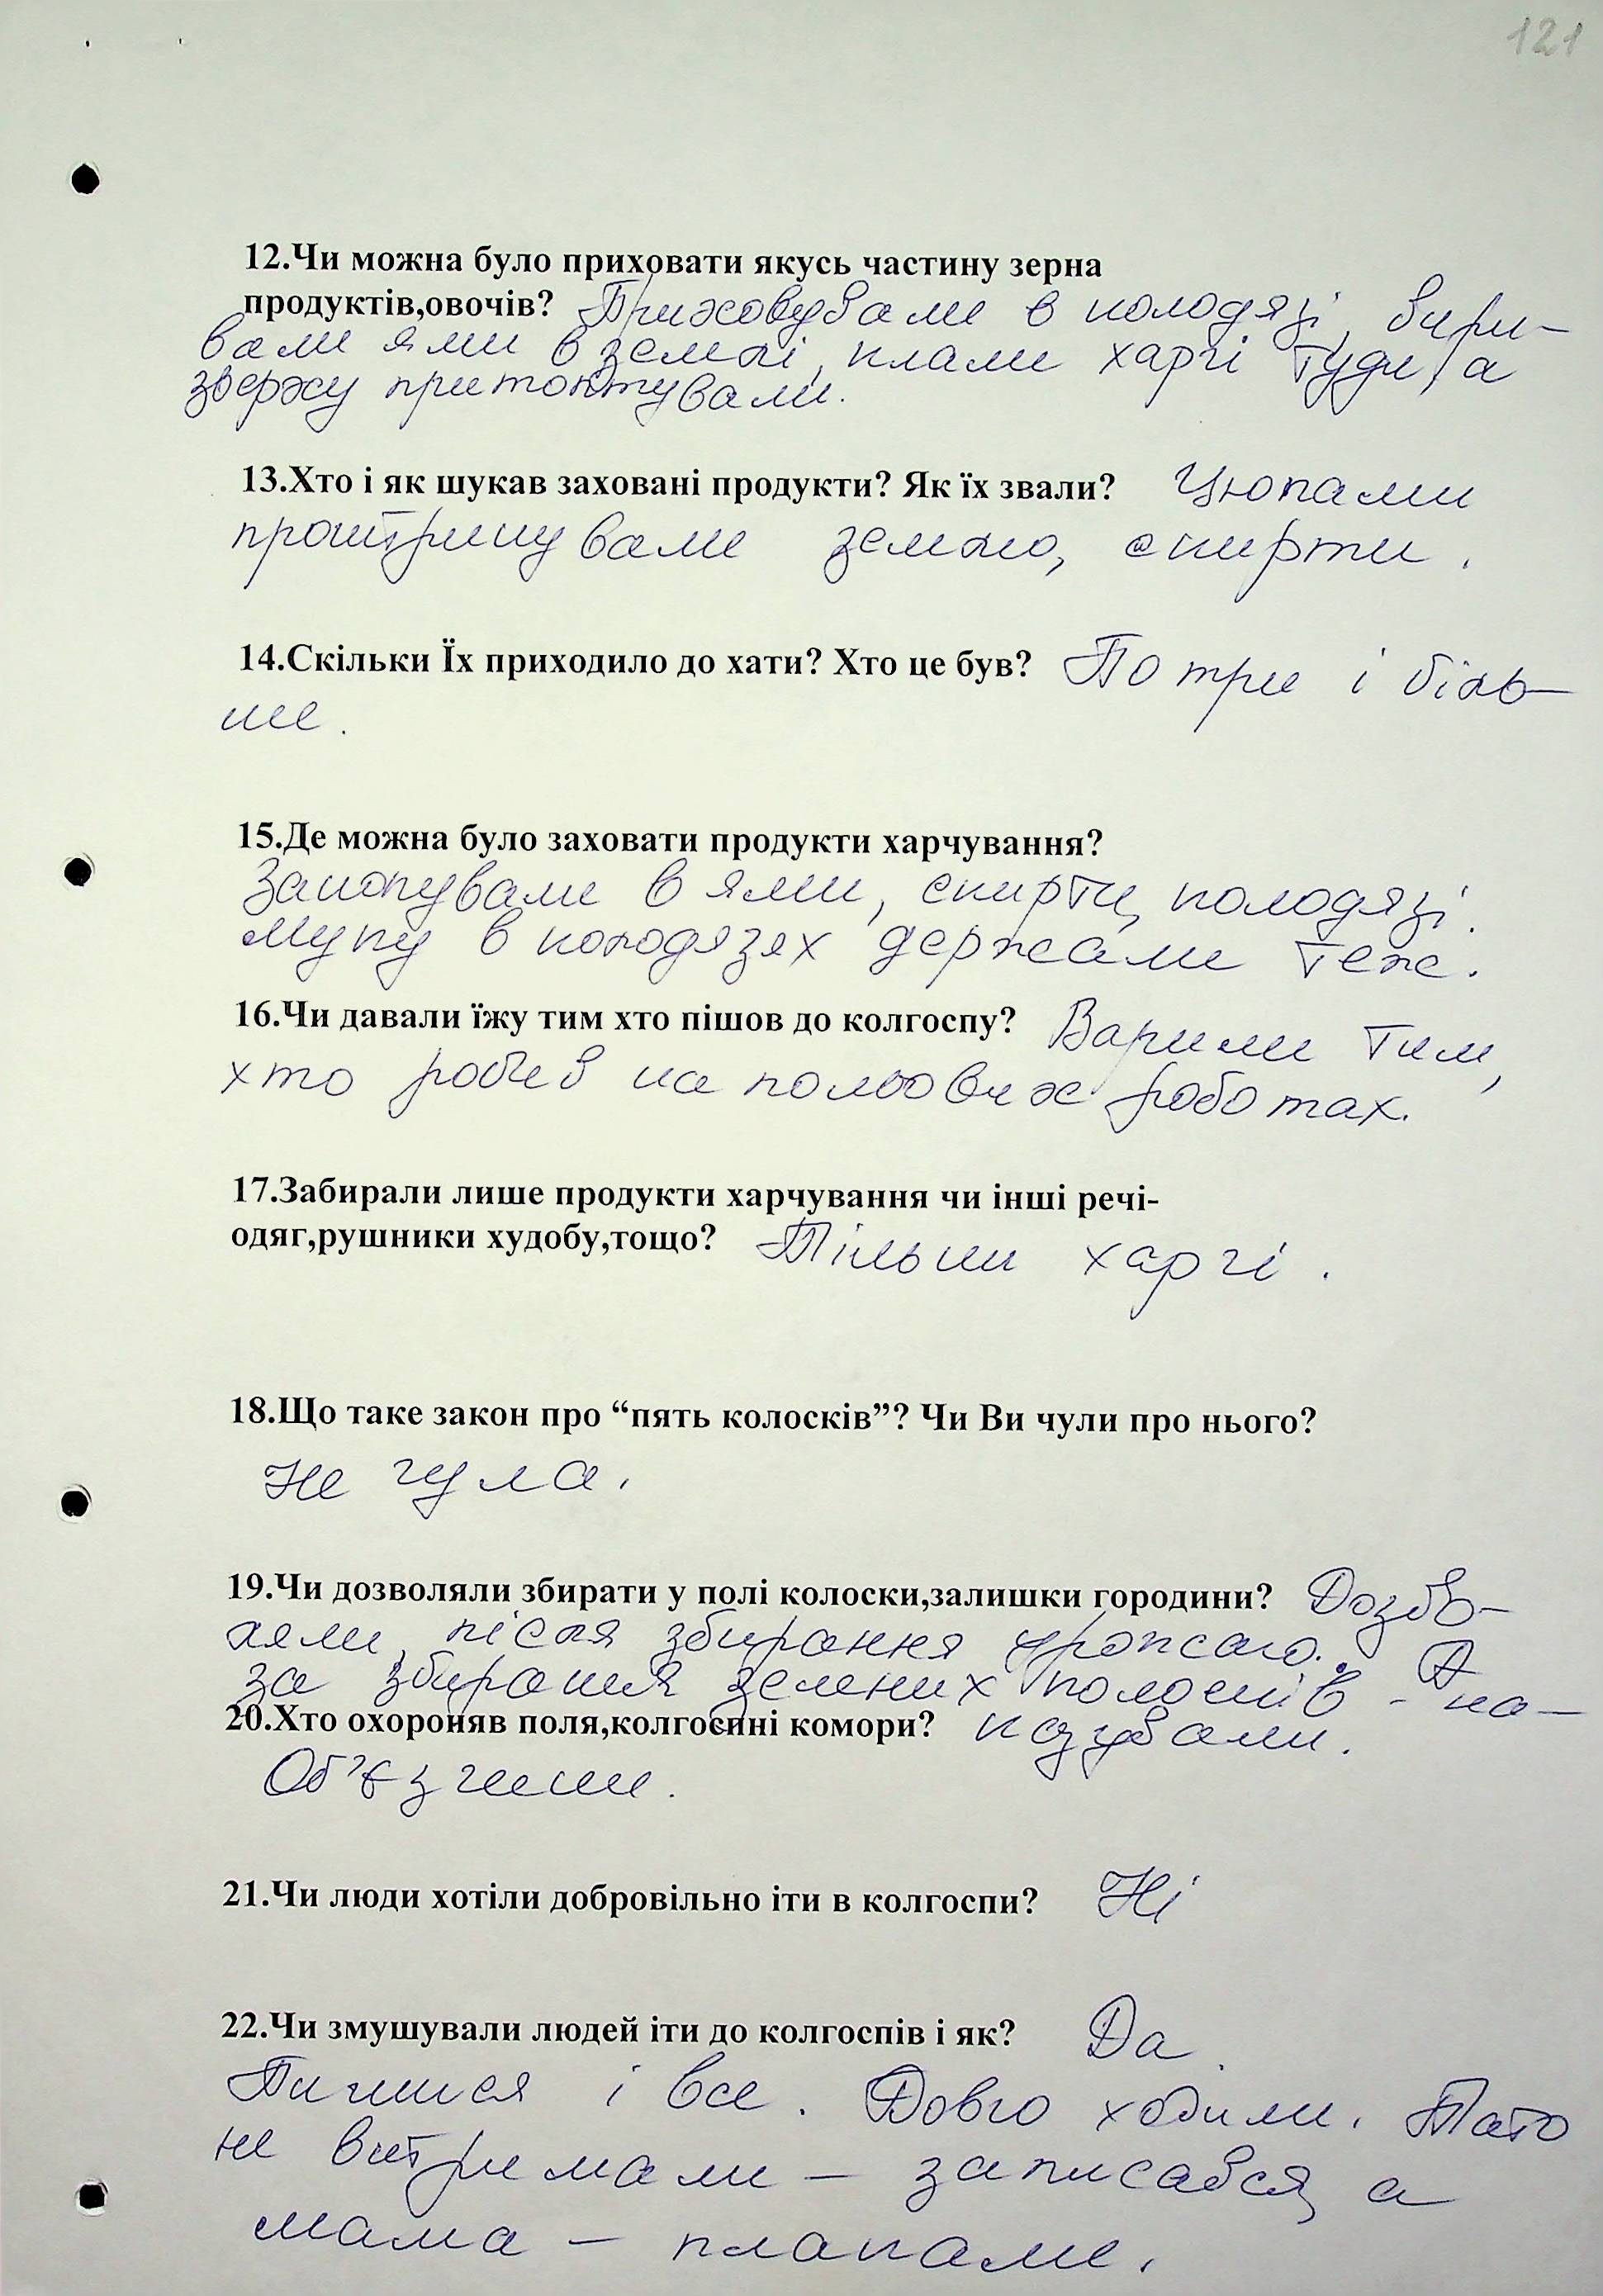 121
12.Чи можна було приховати якусь частину зерна
продуктів,овочів? Приховували в колодязі, вири-
вали ями в землі, клали харчі туди, а
зверху притоптували.
13.Хто і як шукав заховані продукти? Як їх звали? Цюпами
проштрикували землю, скирти.
14.Скільки Їх приходило до хати? Хто це був? По три і біль-
ше.
15.Де можна було заховати продукти харчування?
Закопували в ями, скирти, колодязі.
Муку в колодязях держали теж.
16.Чи давали їжу тим хто пішов до колгоспу? Варили тим,
хто робив на польових роботах.
17.Забирали лише продукти харчування чи інші речі-
одяг,рушники худобу,тощо? Тільки харчі.
18.Що таке закон про “пять колосків”? Чи Ви чули про нього?
Не чула.
19.Чи дозволяли збирати у полі колоски,залишки городини? Дозво-
ляли, після збирання урожаю. А
за збирання зелених колосків - на-
20.Хто охороняв поля,колгоспні комори? казували.
Об'єзчики.
21.Чи люди хотіли добровільно іти в колгоспи? Ні
22.Чи змушували людей іти до колгоспів і як? Да.
Пишися і все. Довго ходили. Тато
не витримали – записався, а
мама – плакали.